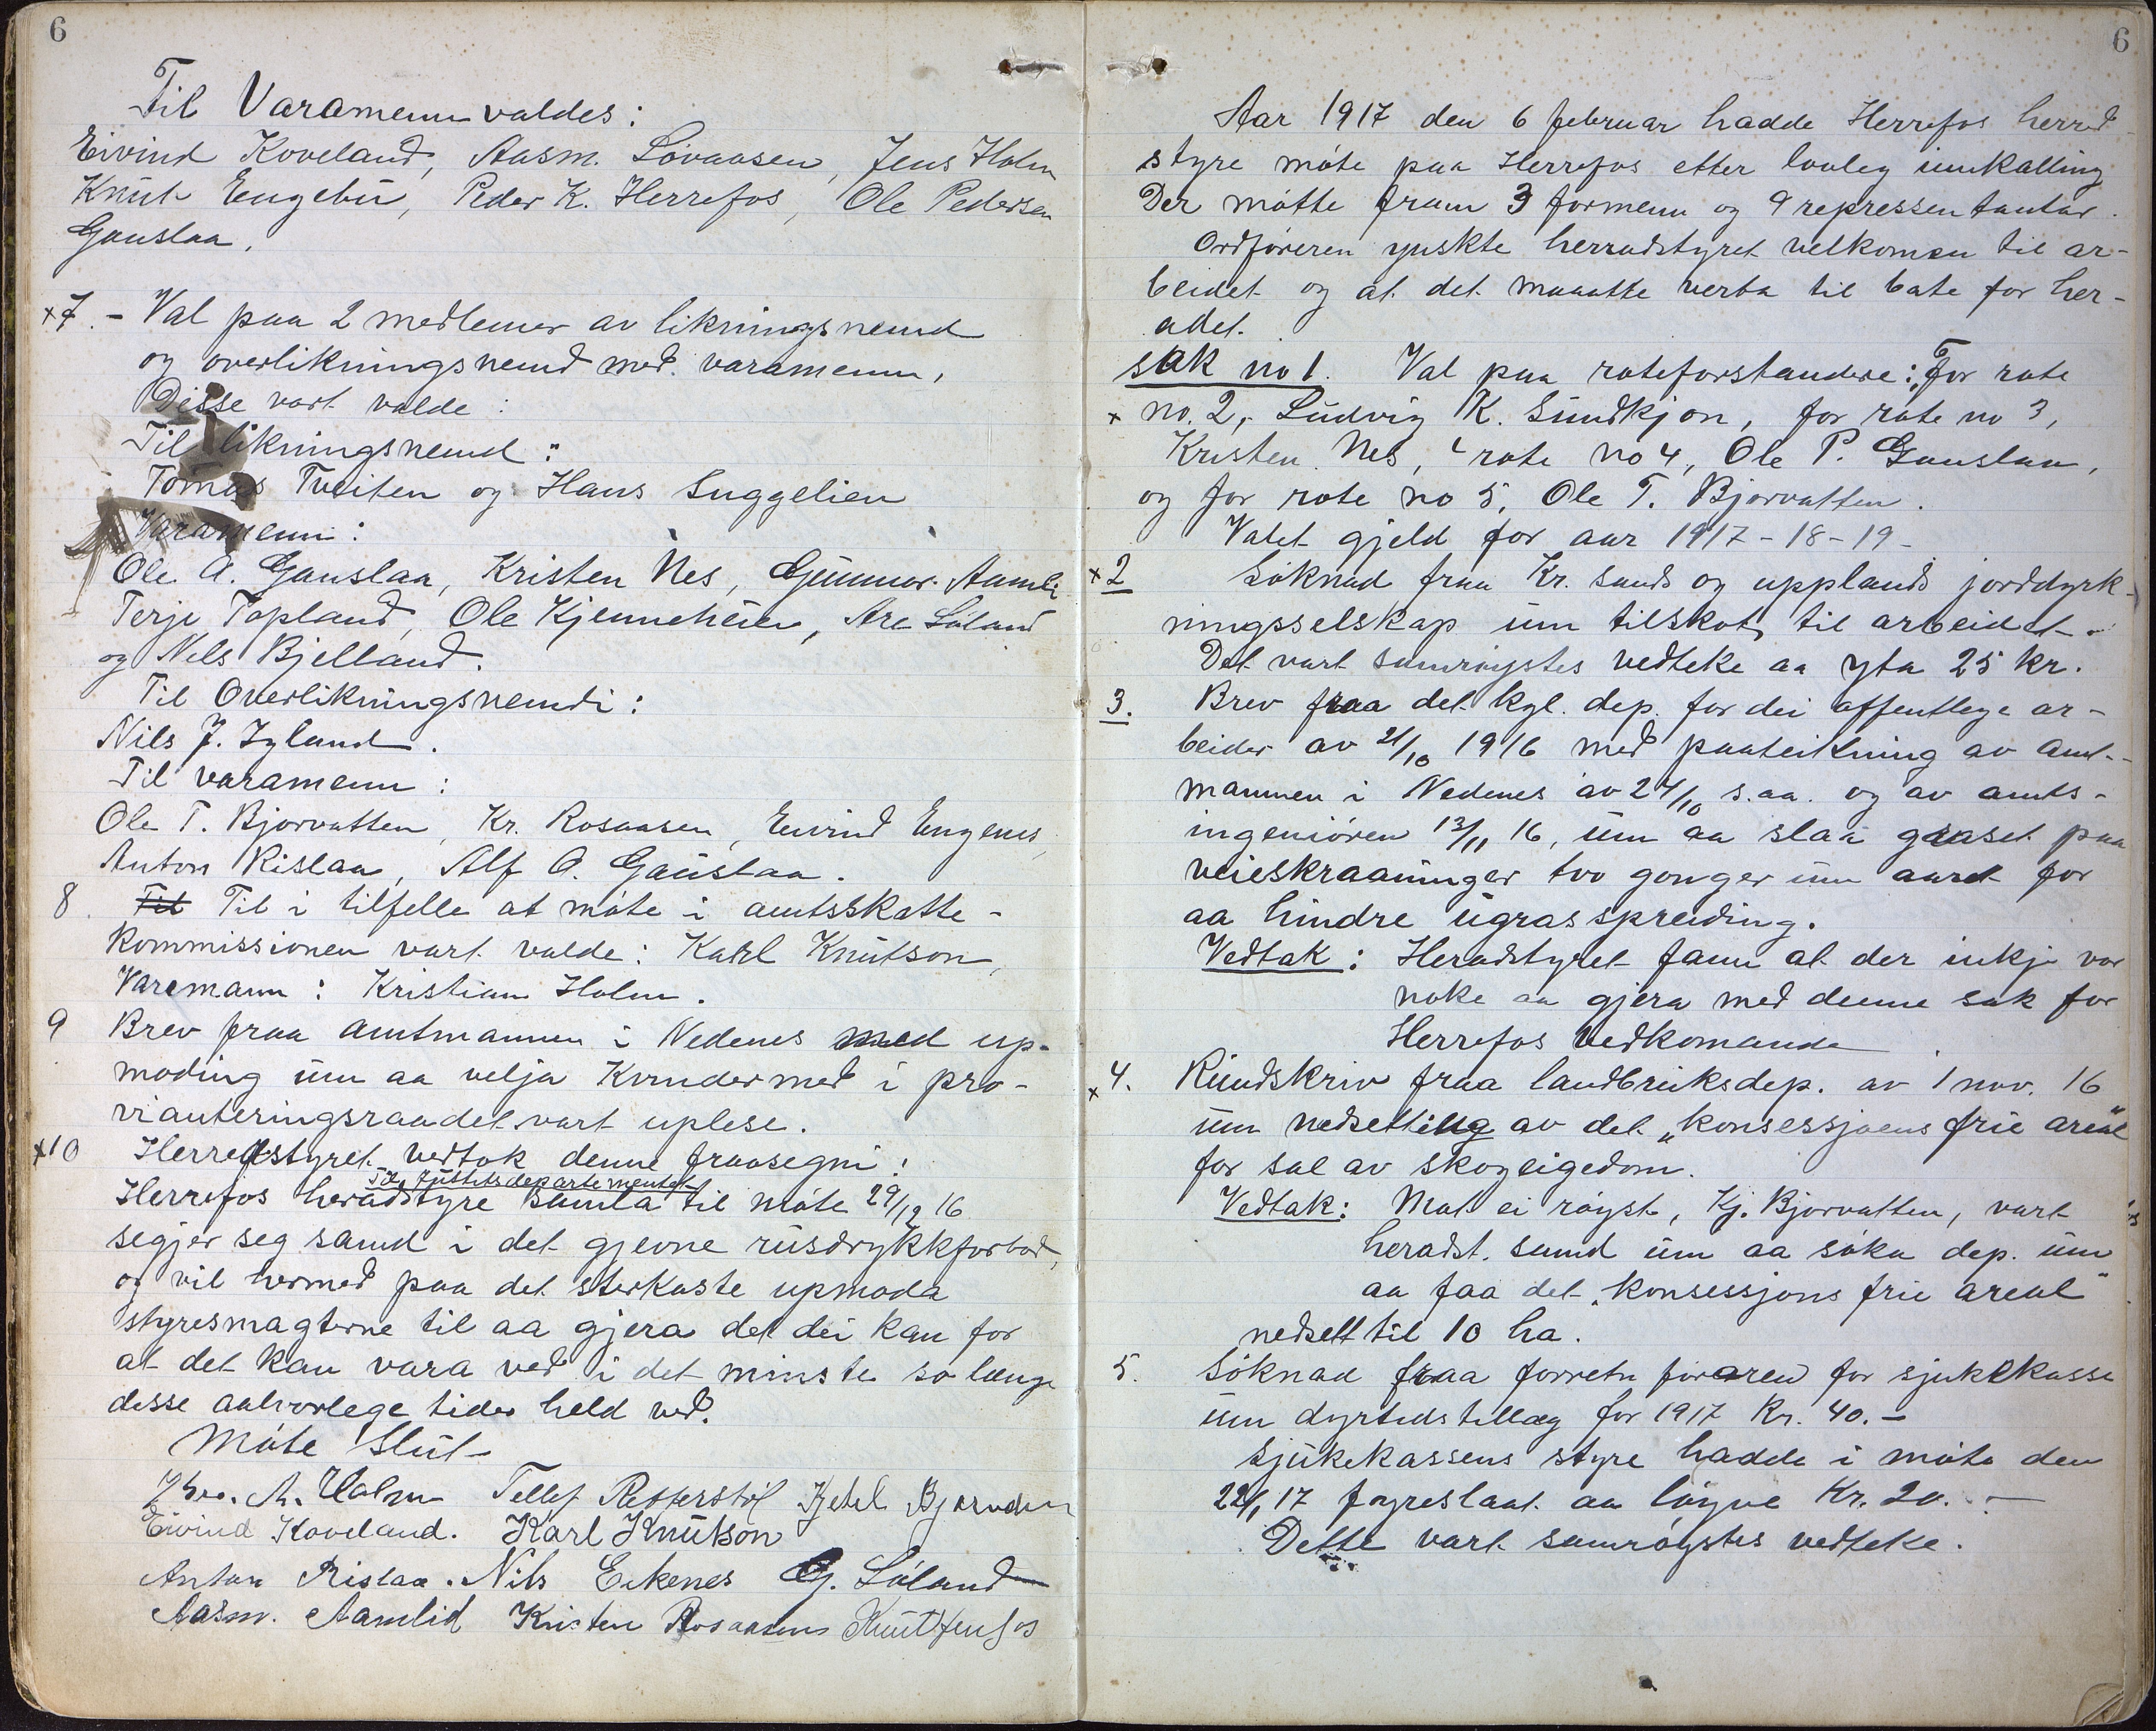 6
Til Varamenn valdes:
Eivind Koveland, Aasm. Lövaasen, Jens Holm
Knut Engebu, Peder K. Herrefos, Ole Pedersen
Gauslaa.
x7. - Val paa 2 medlemer av likningsnemd
og overlikningsnemd med varamenn,
Disse vart valde:
Til likningsnemd:
Tomas Tveiten og Hans Suggelien
Varamenn:
Ole A. Gauslaa, Kristen Nes, Gunnar Aamli
Terje Topland, Ole Kjenneheien, Are Löland
og Nels Bjelland.
Til Overlikningsnemdi:
Nils J. Igland.
Til varamenn:
Ole T. Bjorvatten, Kr. Rosaasen, Eivind Engenes,
Anton Rislaa, Alf O. Gauslaa.
8. Til Til i tilfelle at möte i amtsskatte-
kommissionen vart valde: Karl Knutson,
Varemann: Kristian Holm.
9 Brev fraa amtmannen i Nedenes med up-
moding um aa velja Kvinder med i pro-
vianteringsraadet vart uplese.
x10 Herredstyret vedtok denne fraasegni:
Til Justitsdepartementet
Herrefos heradstyre samla til möte 29/12 16
segjer seg samd i det gjevne rusdrykkforbod,
og vil hermed paa det sterkaste upmoda
styresmagterne til aa gjera det dei kan for
at det kan vara ved i det minste so lenge
desse aalvorlege tider held ved.
Möte Slut
A. Holm Tellef Retterstöl Kjetil Bjorvatten
Eivind Koveland. Karl Knutson
Anton Rislaa. Nils Eikenes G. Löland
Aasm. Aamlid Kristen Rosaasen Knut Jenssos
6
Aar 1917 den 6 februar hadde Herrefos herred
styre möte paa Herrefos etter lovleg innkalling
Der mötte fram 3 formenn og 9 repressentantar.
Ordföreren ynskte herradstyret velkomen til ar-
beidet og at det maaatte verta til bate for her-
adet.
sak no 1. Val paa roteforstandere: For rote
x no. 2, Ludvig K. Sundkjon, for rote no 3,
Kristen Nes, " rote no 4, Ole P. Gauslaa,
og for rote no 5, Ole T. Bjorvatten.
Valet gjeld for aar 1917-18-19-
x2 Söknad fraa Kr. sands og upplands jorddyrk-
ningsselskap um tilskot til arbeidet.
Det vart samröystes vedteke aa yta 25 kr.
3. Brev fraa det kgl. dep. for dei offentlege ar-
beider av 21/10 1916 med paateikning av amt-
mannen i Nedenes av 24/10 s.aa. og av amts-
ingeniören 13/11 16, um aa slaa graset paa
veieskraaninger tvo gonger um aaret for
aa hindre ugrasspreiding.
Vedtak: Heradstyret fann at der inkje var
noke aa gjera med denne sak for
Herrefos vedkomande
x 4. Rundskriv fraa landbruksdep. av 1 nov. 16
um nedsetting av det „konsessjoens frie areal"
for sal av skogeigedom.
Vedtak: Mot ei röyst, Kj. Bjorvatten, vart
heradst. samd um aa söka dep. um
aa faa det „konsessjons frie areal"
nedsett til 10 ha.
5. Söknad fraa forretn föraren for sjukekasse
um dyrtidstillæg for 1917 Kr. 40.-
Sjukekassens styre hadde i möte den
22/1 17 föyreslaat aa löyve Kr. 20.-
Dette vart samröystes vedteke.